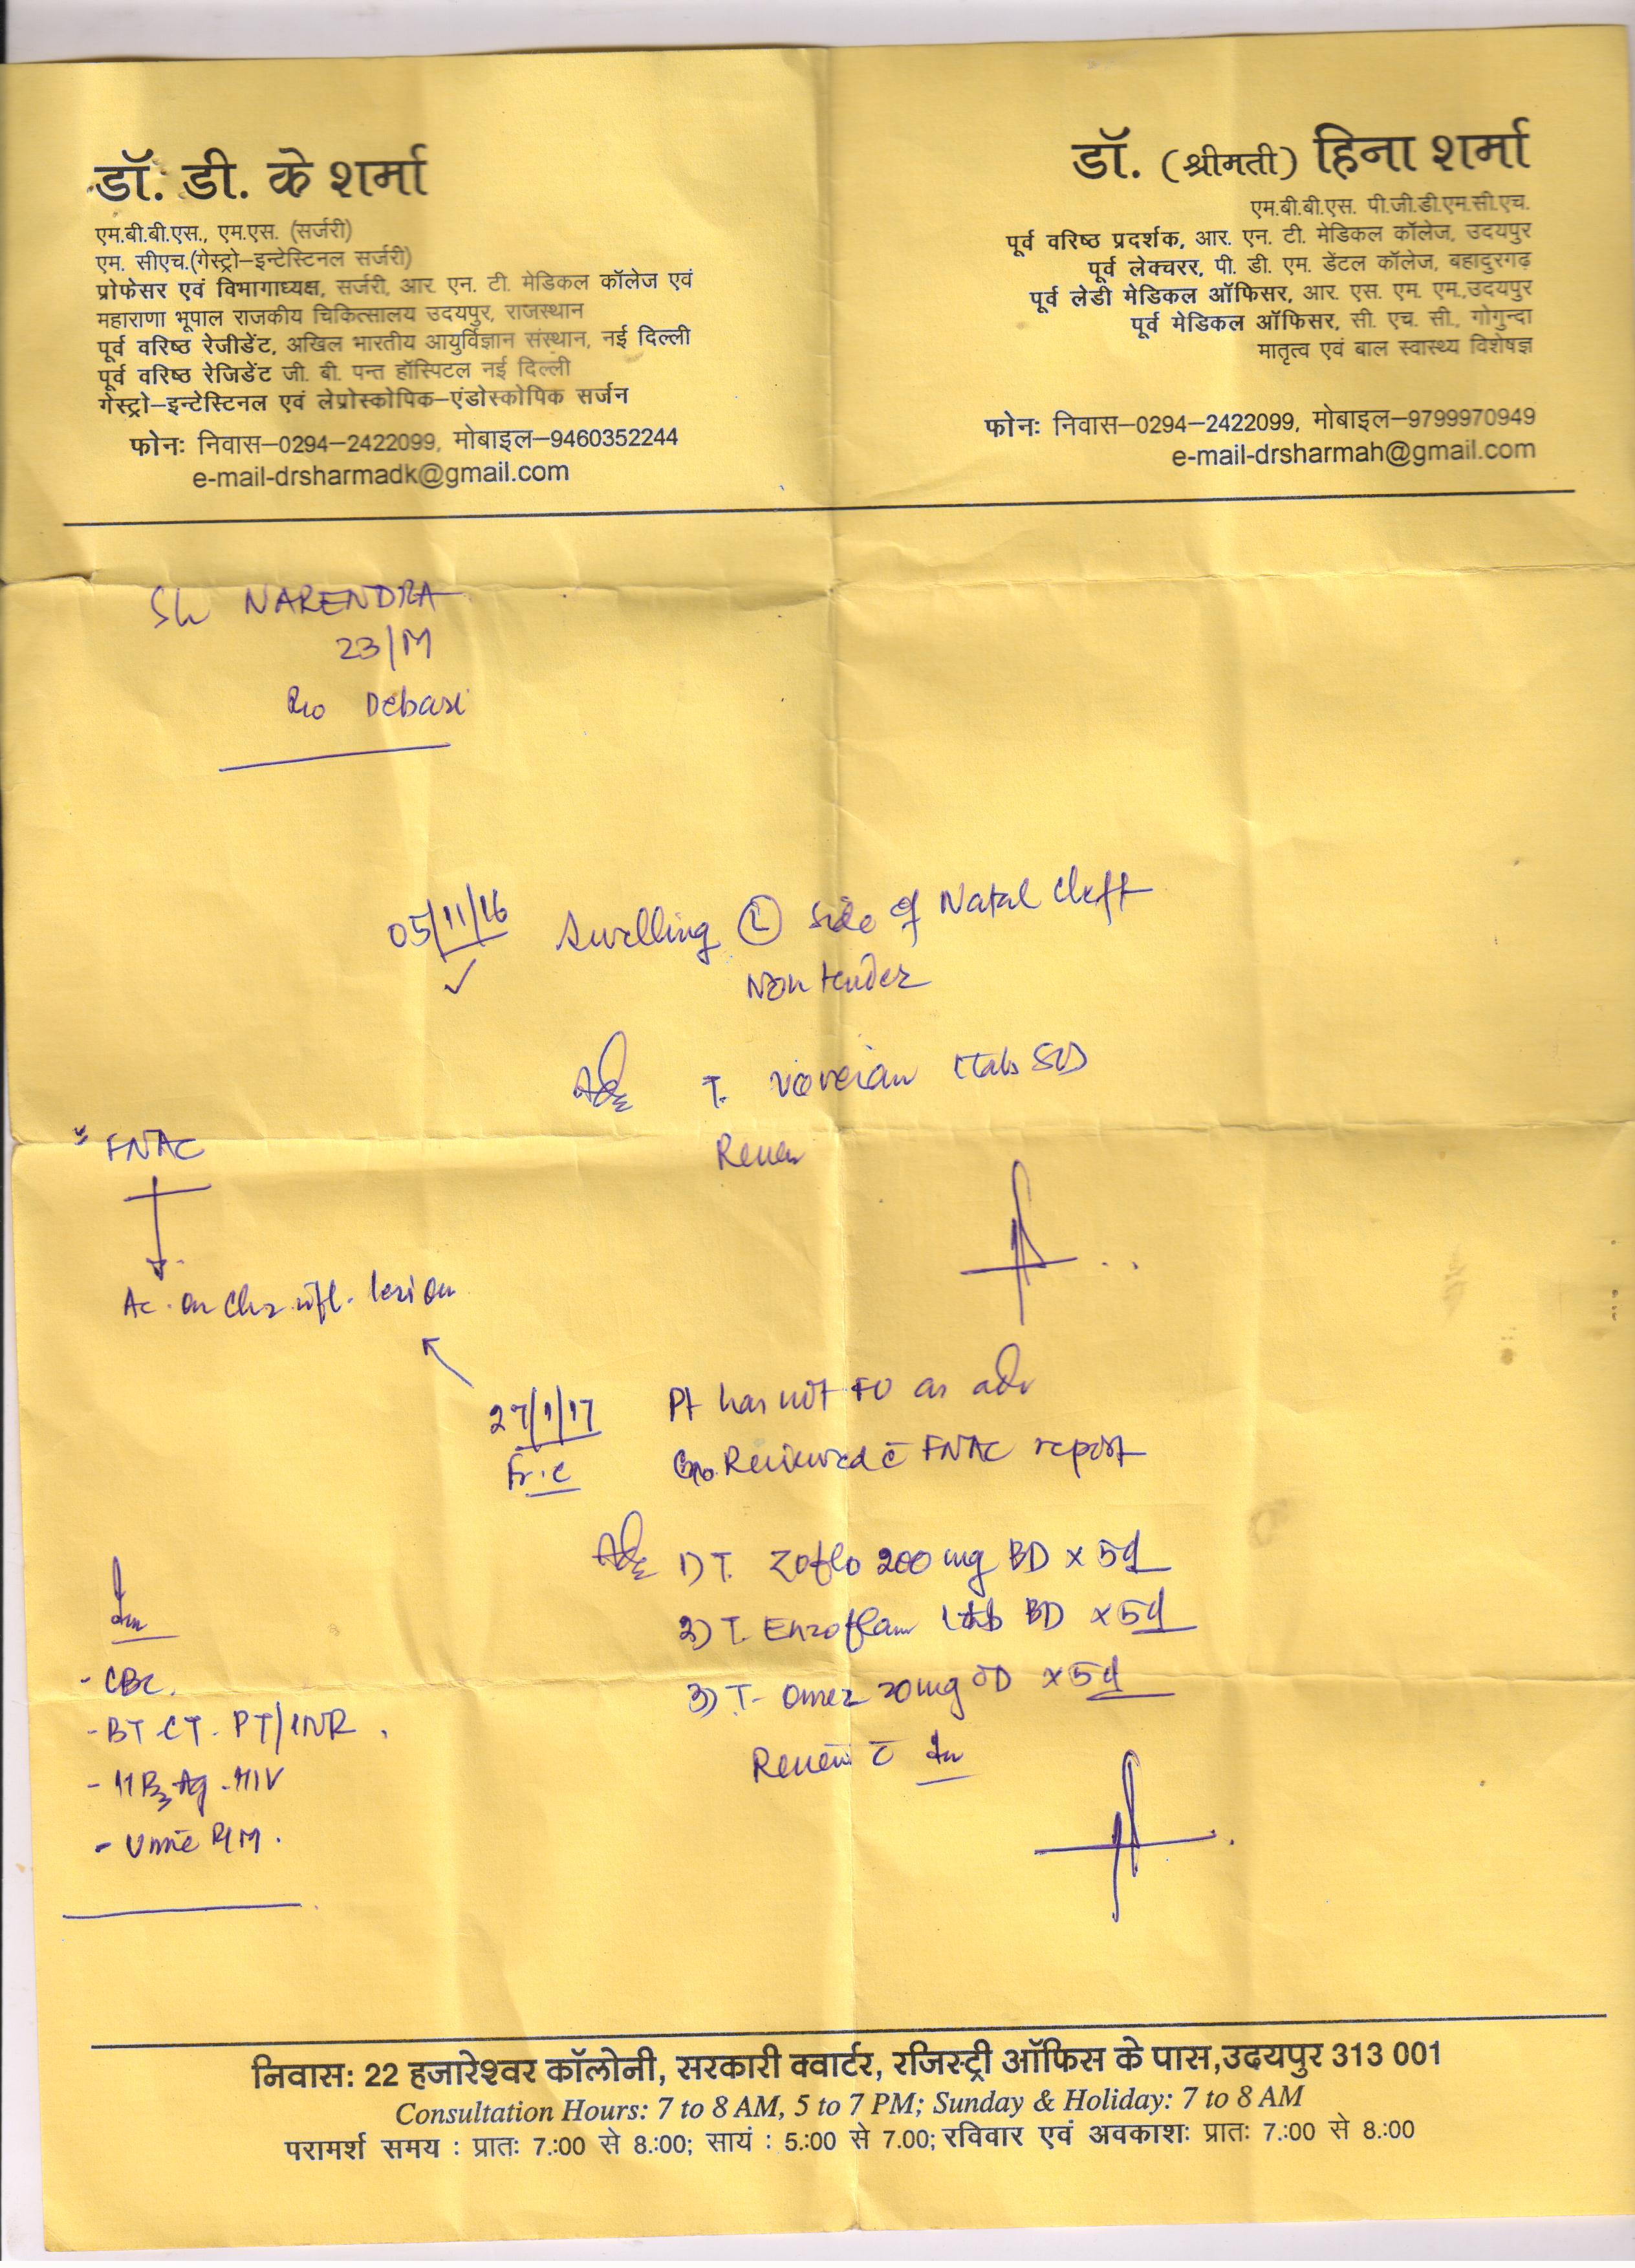 डॉ. डी. के शर्मा
एम.बी.बी.एस., एम.एस. (सर्जरी)
एम. सीएच.(गेस्ट्रो–इन्टेस्टिनल सर्जरी)
प्रोफेसर एवं विभागाध्यक्ष, सर्जरी, आर. एन. टी. मेडिकल कॉलेज एवं
महाराणा भूपाल राजकीय चिकित्सालय उदयपुर, राजस्थान
पूर्व वरिष्ठ रेजीडेंट, अखिल भारतीय आयुर्विज्ञान संस्थान, नई दिल्ली
पूर्व वरिष्ठ रेजिडेंट जी. बी. पन्त हॉस्पिटल नई दिल्ली
गेस्ट्रो–इन्टेस्टिनल एवं लेप्रोस्कोपिक–एंडोस्कोपिक सर्जन
फोनः निवास–0294–2422099, मोबाइल–9460352244
e-mail-drsharmadk@gmail.com
डॉ. (श्रीमती) हिना शर्मा
एम.बी.बी.एस. पी.जी.डी.एम.सी.एच.
पूर्व वरिष्ठ प्रदर्शक, आर. एन. टी. मेडिकल कॉलेज, उदयपुर
पूर्व लेक्चरर, पी. डी. एम. डेंटल कॉलेज, बहादुरगढ़
पूर्व लेडी मेडिकल ऑफिसर, आर. एस. एम. एम.,उदयपुर
पूर्व मेडिकल ऑफिसर, सी. एच. सी., गोगुन्दा
मातृत्व एवं बाल स्वास्थ्य विशेषज्ञ
फोनः निवास–0294–2422099, मोबाइल–9799970949
e-mail-drsharmah@gmail.com
Sh NARENDRA
23/M
R/o Debari
05/11/16 Swelling (L) side of Natal cleft
Non tender
Adv T. Voveran 1 tab SOS
Review
FNAC
Ac. on Chr. infl. lesion
27/1/17 Pt has not FU as adv
Reviewed c̄ FNAC report
Adv 1) T. Zoflo 200 mg BD x 5d
2) T. Enzoflam 1 tab BD x 5d
3) T- Omez 20mg OD x 5d
Review c̄ Inv
Inv
- CBC.
- BT. CT. PT/INR.
- HBsAg - HIV
- Urine R/M.
निवास: 22 हजारेश्वर कॉलोनी, सरकारी क्वार्टर, रजिस्ट्री ऑफिस के पास,उदयपुर 313 001
Consultation Hours: 7 to 8 AM, 5 to 7 PM; Sunday & Holiday: 7 to 8 AM
परामर्श समय : प्रातः 7.:00 से 8.:00; सायं : 5.:00 से 7.00; रविवार एवं अवकाशः प्रातः 7.:00 से 8.:00